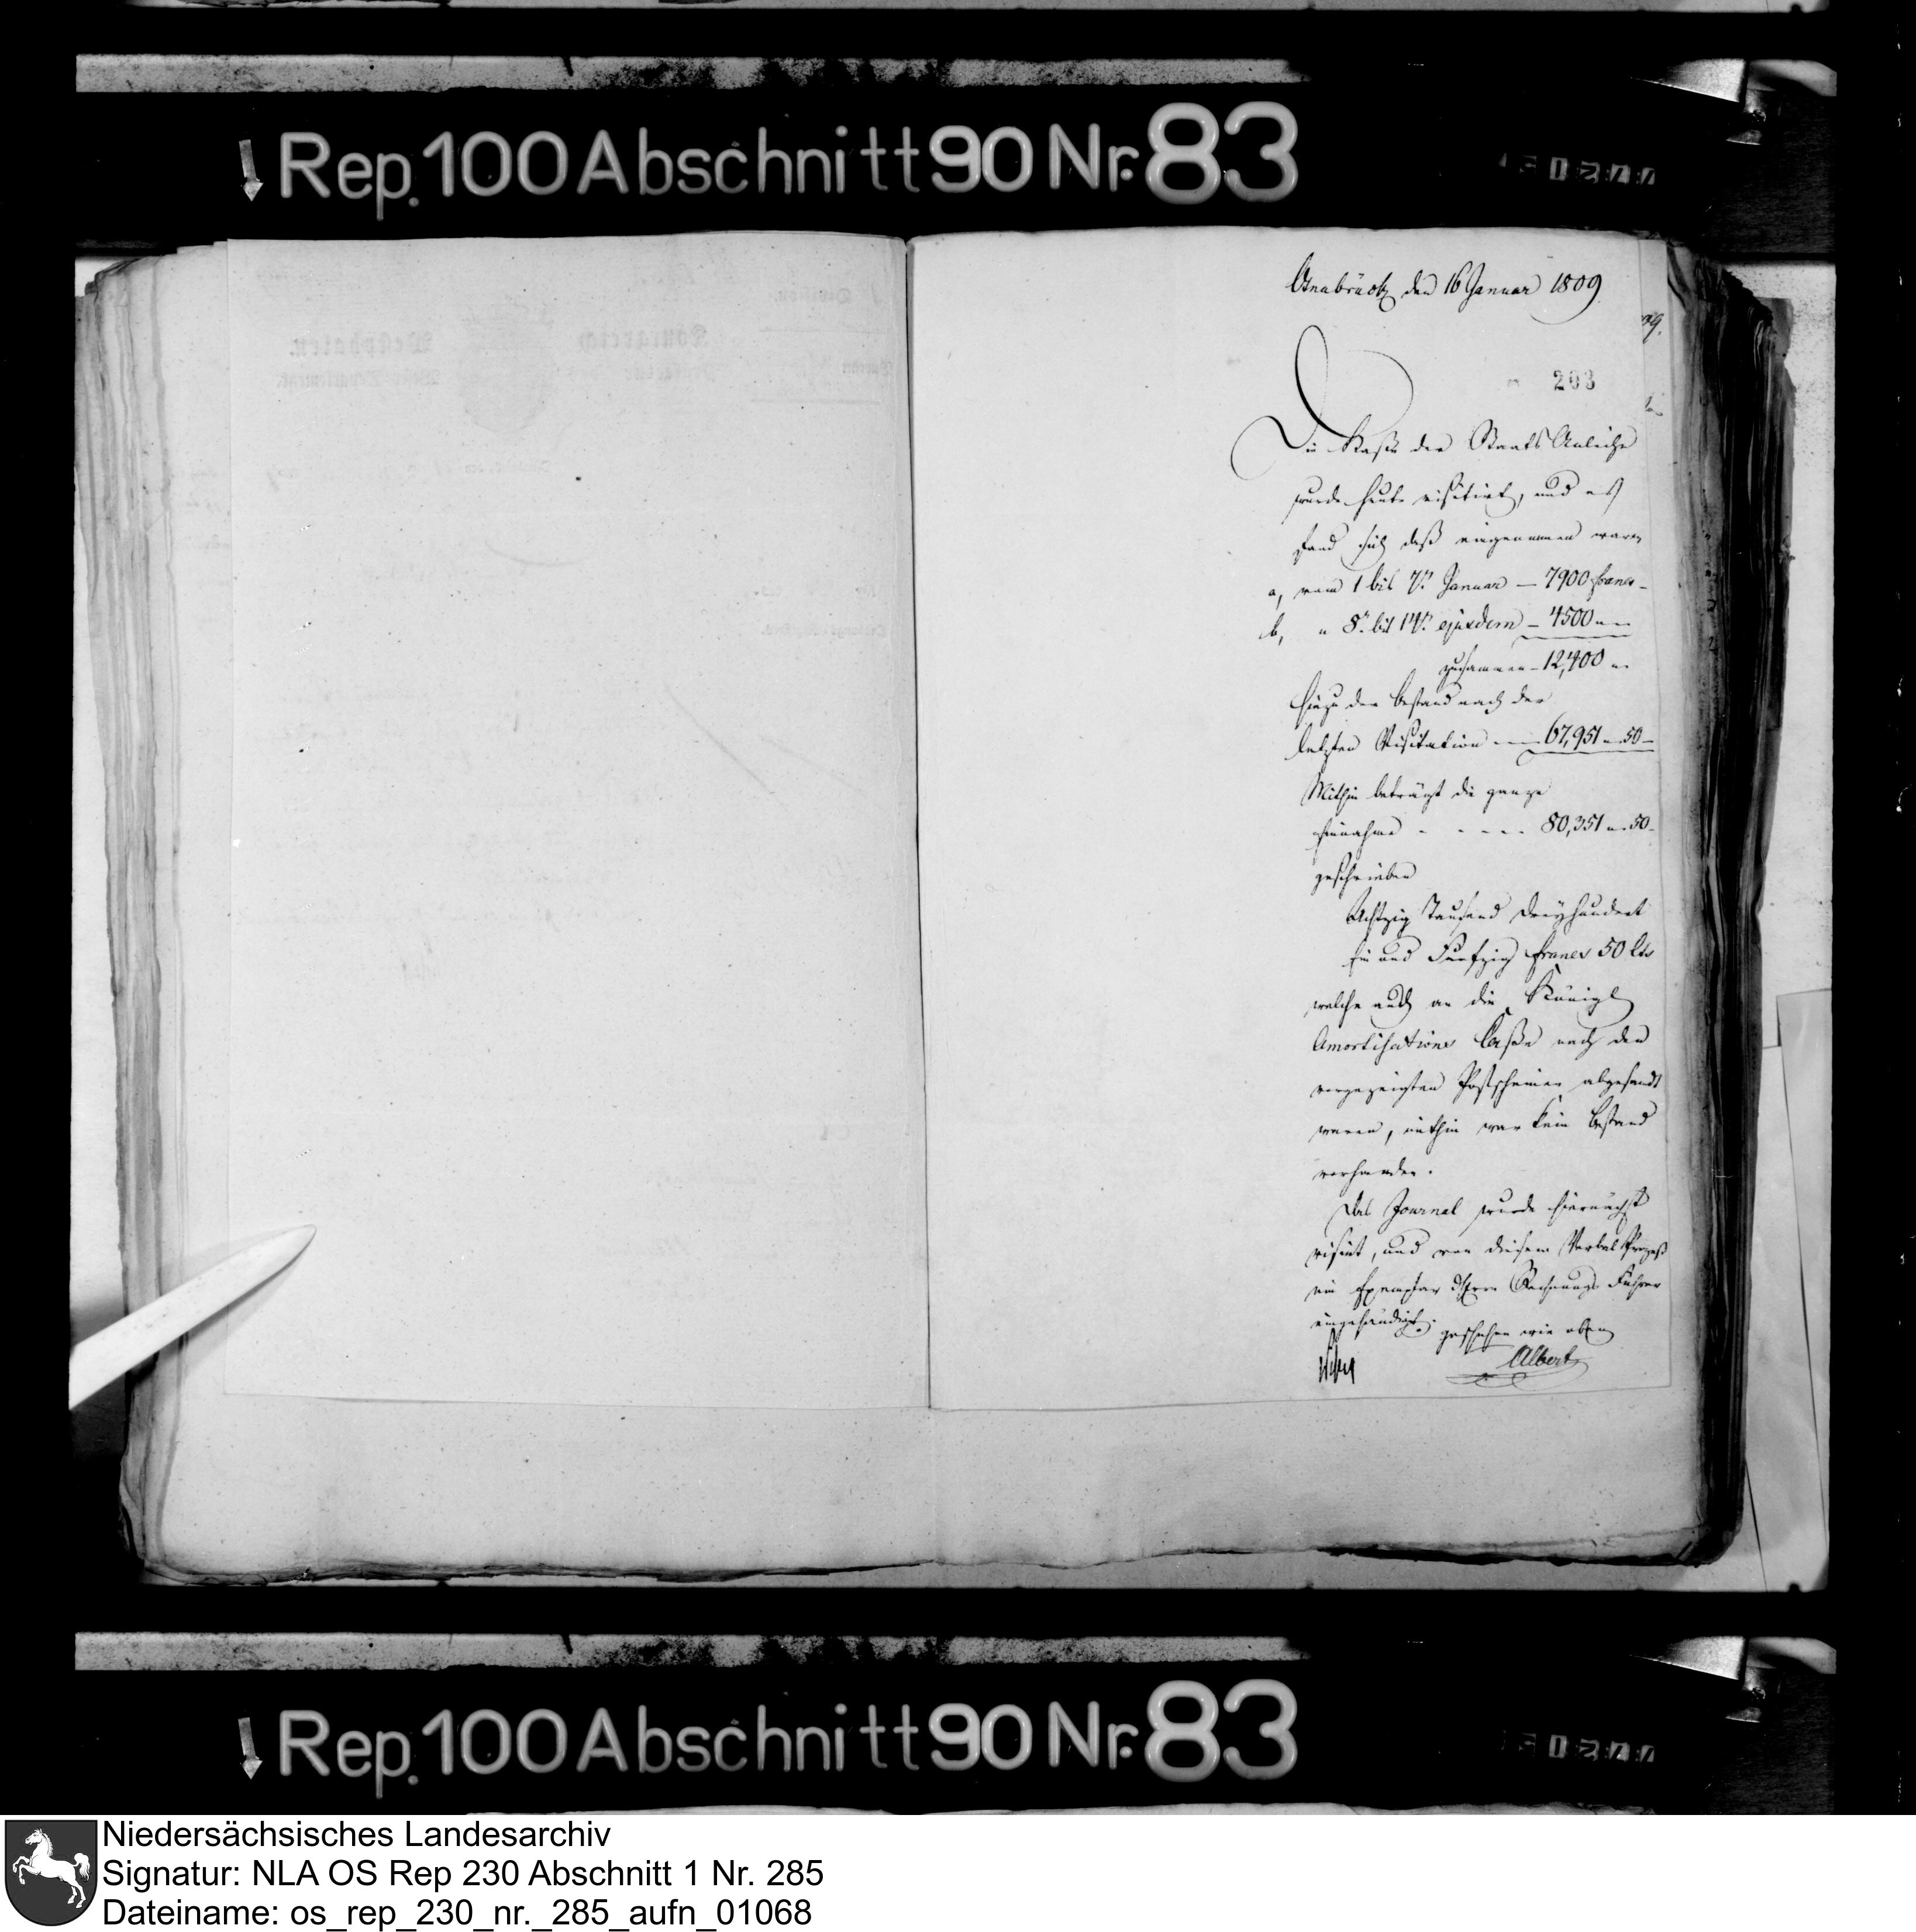 Rep. 100 Abschnitt 90 Nr. 83
Osnabrück den 16 Januar 1809
203
Die Kasse der Staats Anleihe
wurde heute visitirt, und es
fand sich daß eingenommen waren
a, vom 1 bis 7n Januar — 7900 francs —
b, " 8n bis 14n ejusdem — 4500 " —
zusammen — 12,400 "
Hiezu der Bestand nach der
letzten Visitation — 67,951 " 50 —
Mithin beträgt die ganze
Einnahme - - - - - 80,351 " 50 -
geschrieben
Achtzig Tausend Dreyhundert
Ein und Funfzig francs 50 Cts
welche auch an die Königl
Amortisations Casse nach den
vorgezeigten Postscheinen abgesandt
waren, mithin war kein Bestand
vorhanden.
Das Journal wurde hiernächst
visirt, und von diesem Verbal Prozeß
ein Exemplar dem Rechnungs Führer
eingehändigt. geschehen wie oben
Albert
Rep. 100 Abschnitt 90 Nr. 83
Niedersächsisches Landesarchiv
Signatur: NLA OS Rep 230 Abschnitt 1 Nr. 285
Dateiname: os_rep_230_nr._285_aufn_01068